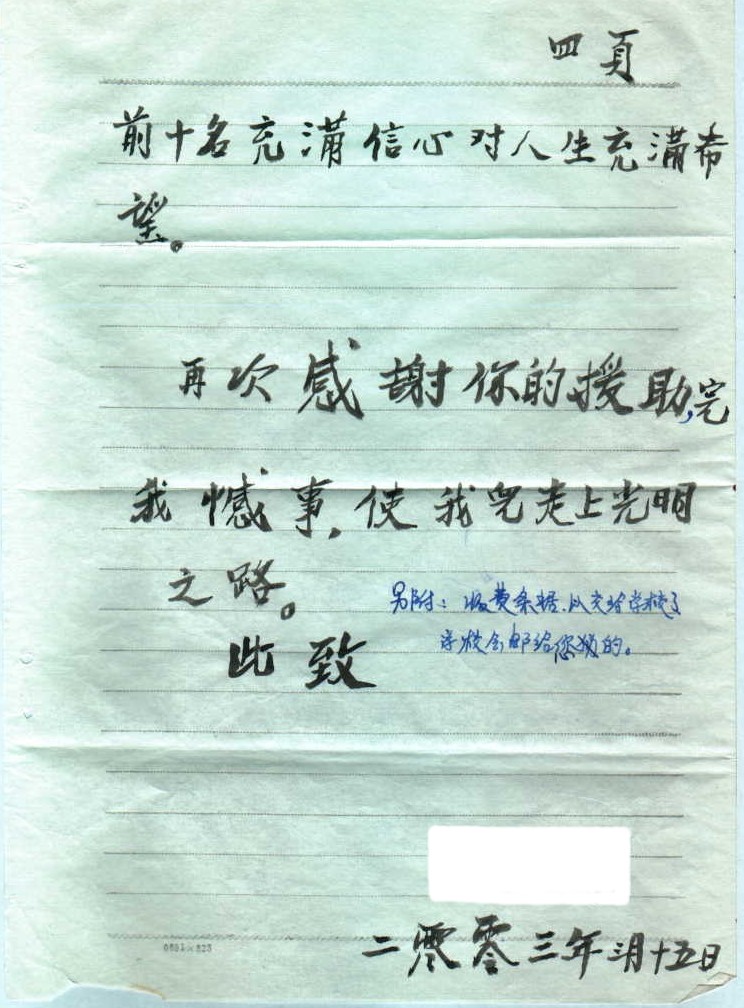 四頁
前十名充满信心对人生充满希
望。
再次感謝你的援助,完
我憾事,使我兒走上光明
之路。
另附:收费条据.以交给学校了
学校会邮给您们的。
此致
二零零三年三月十五日